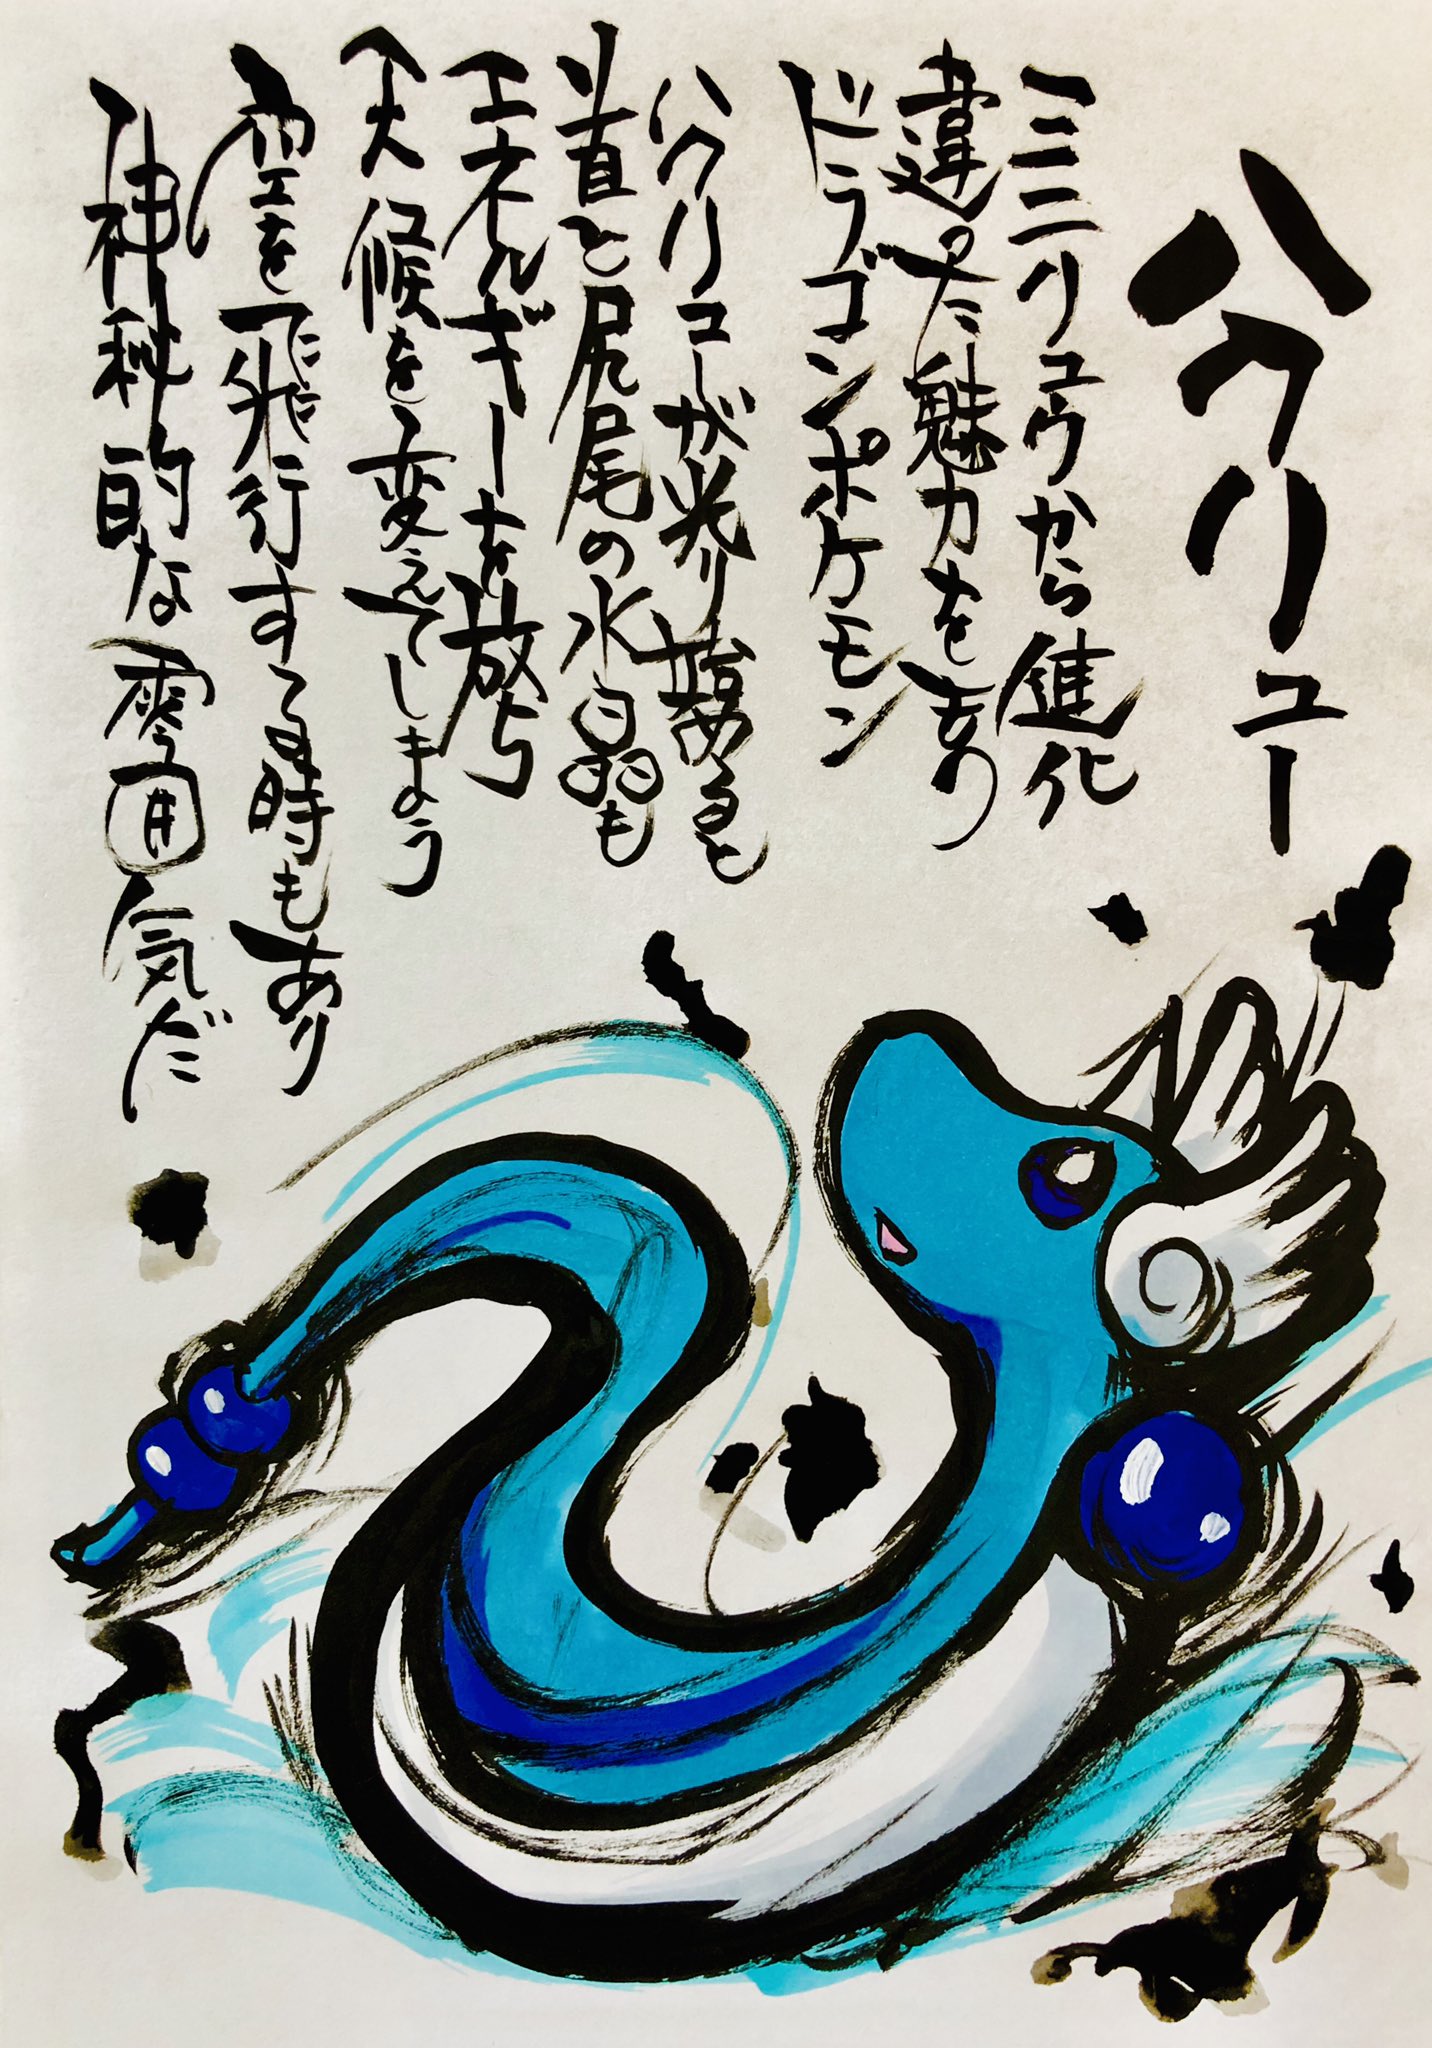 ハクリュー
ミニリュウから進化
違った魅力をもつ
ドラゴンポケモン
ハクリューが光り始めると
首と尻尾の水晶も
エネルギーを放ち
天候を変えてしまう
空を飛行する時もあり
神秘的な雰囲気だ